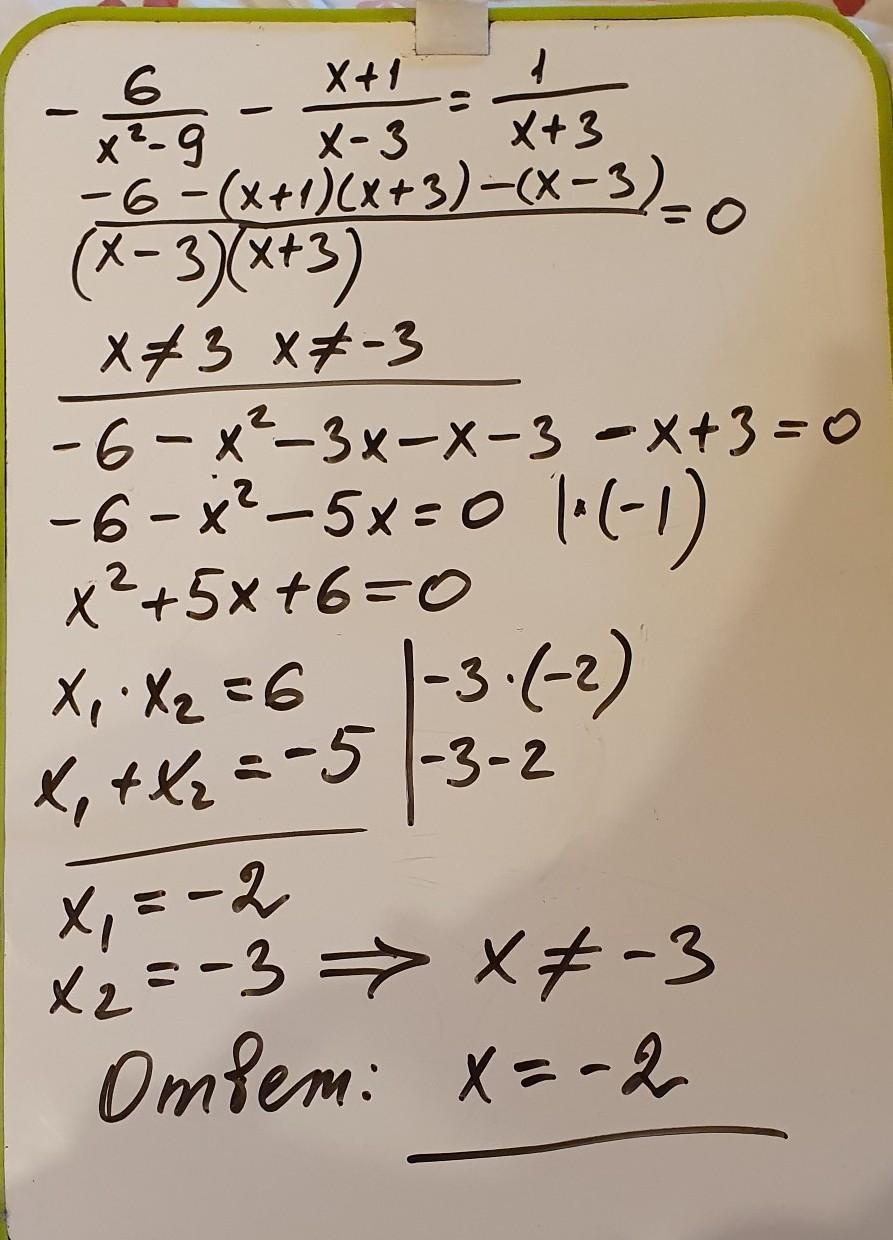 - 6/(x²-9) - (x+1)/(x-3) = 1/(x+3)
(-6-(x+1)(x+3)-(x-3))/((x-3)(x+3)) = 0
x≠3 x≠-3
-6-x²-3x-x-3-x+3=0
-6-x²-5x=0 |·(-1)
x²+5x+6=0
x₁·x₂=6 | -3·(-2)
x₁+x₂=-5 | -3-2
x₁=-2
x₂=-3 ⇒ x≠-3
Ответ: x=-2